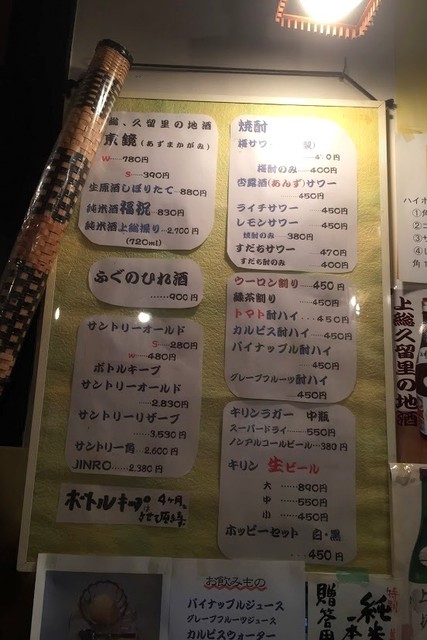 総、久留里の地酒
東鏡(あずまかがみ)
W……780円
S……390円
生原酒しぼりたて……880円
純米酒 福祝……830円
純米酒上総掘り……2,700円
(720ml)
ふぐのひれ酒
……900円
サントリーオールド
S……280円
W……480円
ボトルキープ
サントリーオールド
……2,830円
サントリーリザーブ
……3,530円
サントリー角……2,600円
JINRO……2,380円
ボトルキープ
4ヶ月
焼酎
桜サワー
桜酎のみ……400円
杏露酒(あんず)サワー
……450円
ライチサワー……450円
レモンサワー……450円
焼酎のみ……380円
すだちサワー……470円
すだち酎のみ……400円
ウーロン割り……450円
緑茶割り……450円
トマト酎ハイ……450円
カルピス酎ハイ……450円
パイナップル酎ハイ
……450円
グレープフルーツ酎ハイ
……450円
キリンラガー 中瓶
スーパードライ……550円
ノンアルコールビール……380円
キリン 生ビール
大……890円
中……550円
小……450円
ホッピーセット 白・黒
……450円
お飲みもの
パイナップルジュース
グレープフルーツジュース
カルピスウォーター
ハイボ
上総久留里の地酒
贈答用